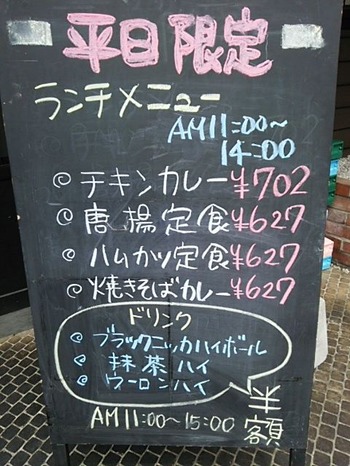 平日限定
ランチメニュー
AM11:00〜
14:00
◎チキンカレー¥702
◎唐揚定食¥627
◎ハムカツ定食¥627
◎焼きそばカレー¥627
ドリンク
◎ブラックニッカハイボール
◎抹茶ハイ
◎ウーロンハイ
半額
AM11:00〜15:00